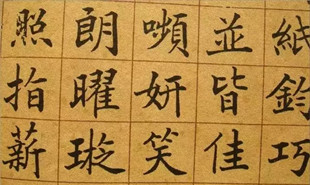 紙鈞巧
並皆佳
嚬妍笑
朗曜璇
照指薪